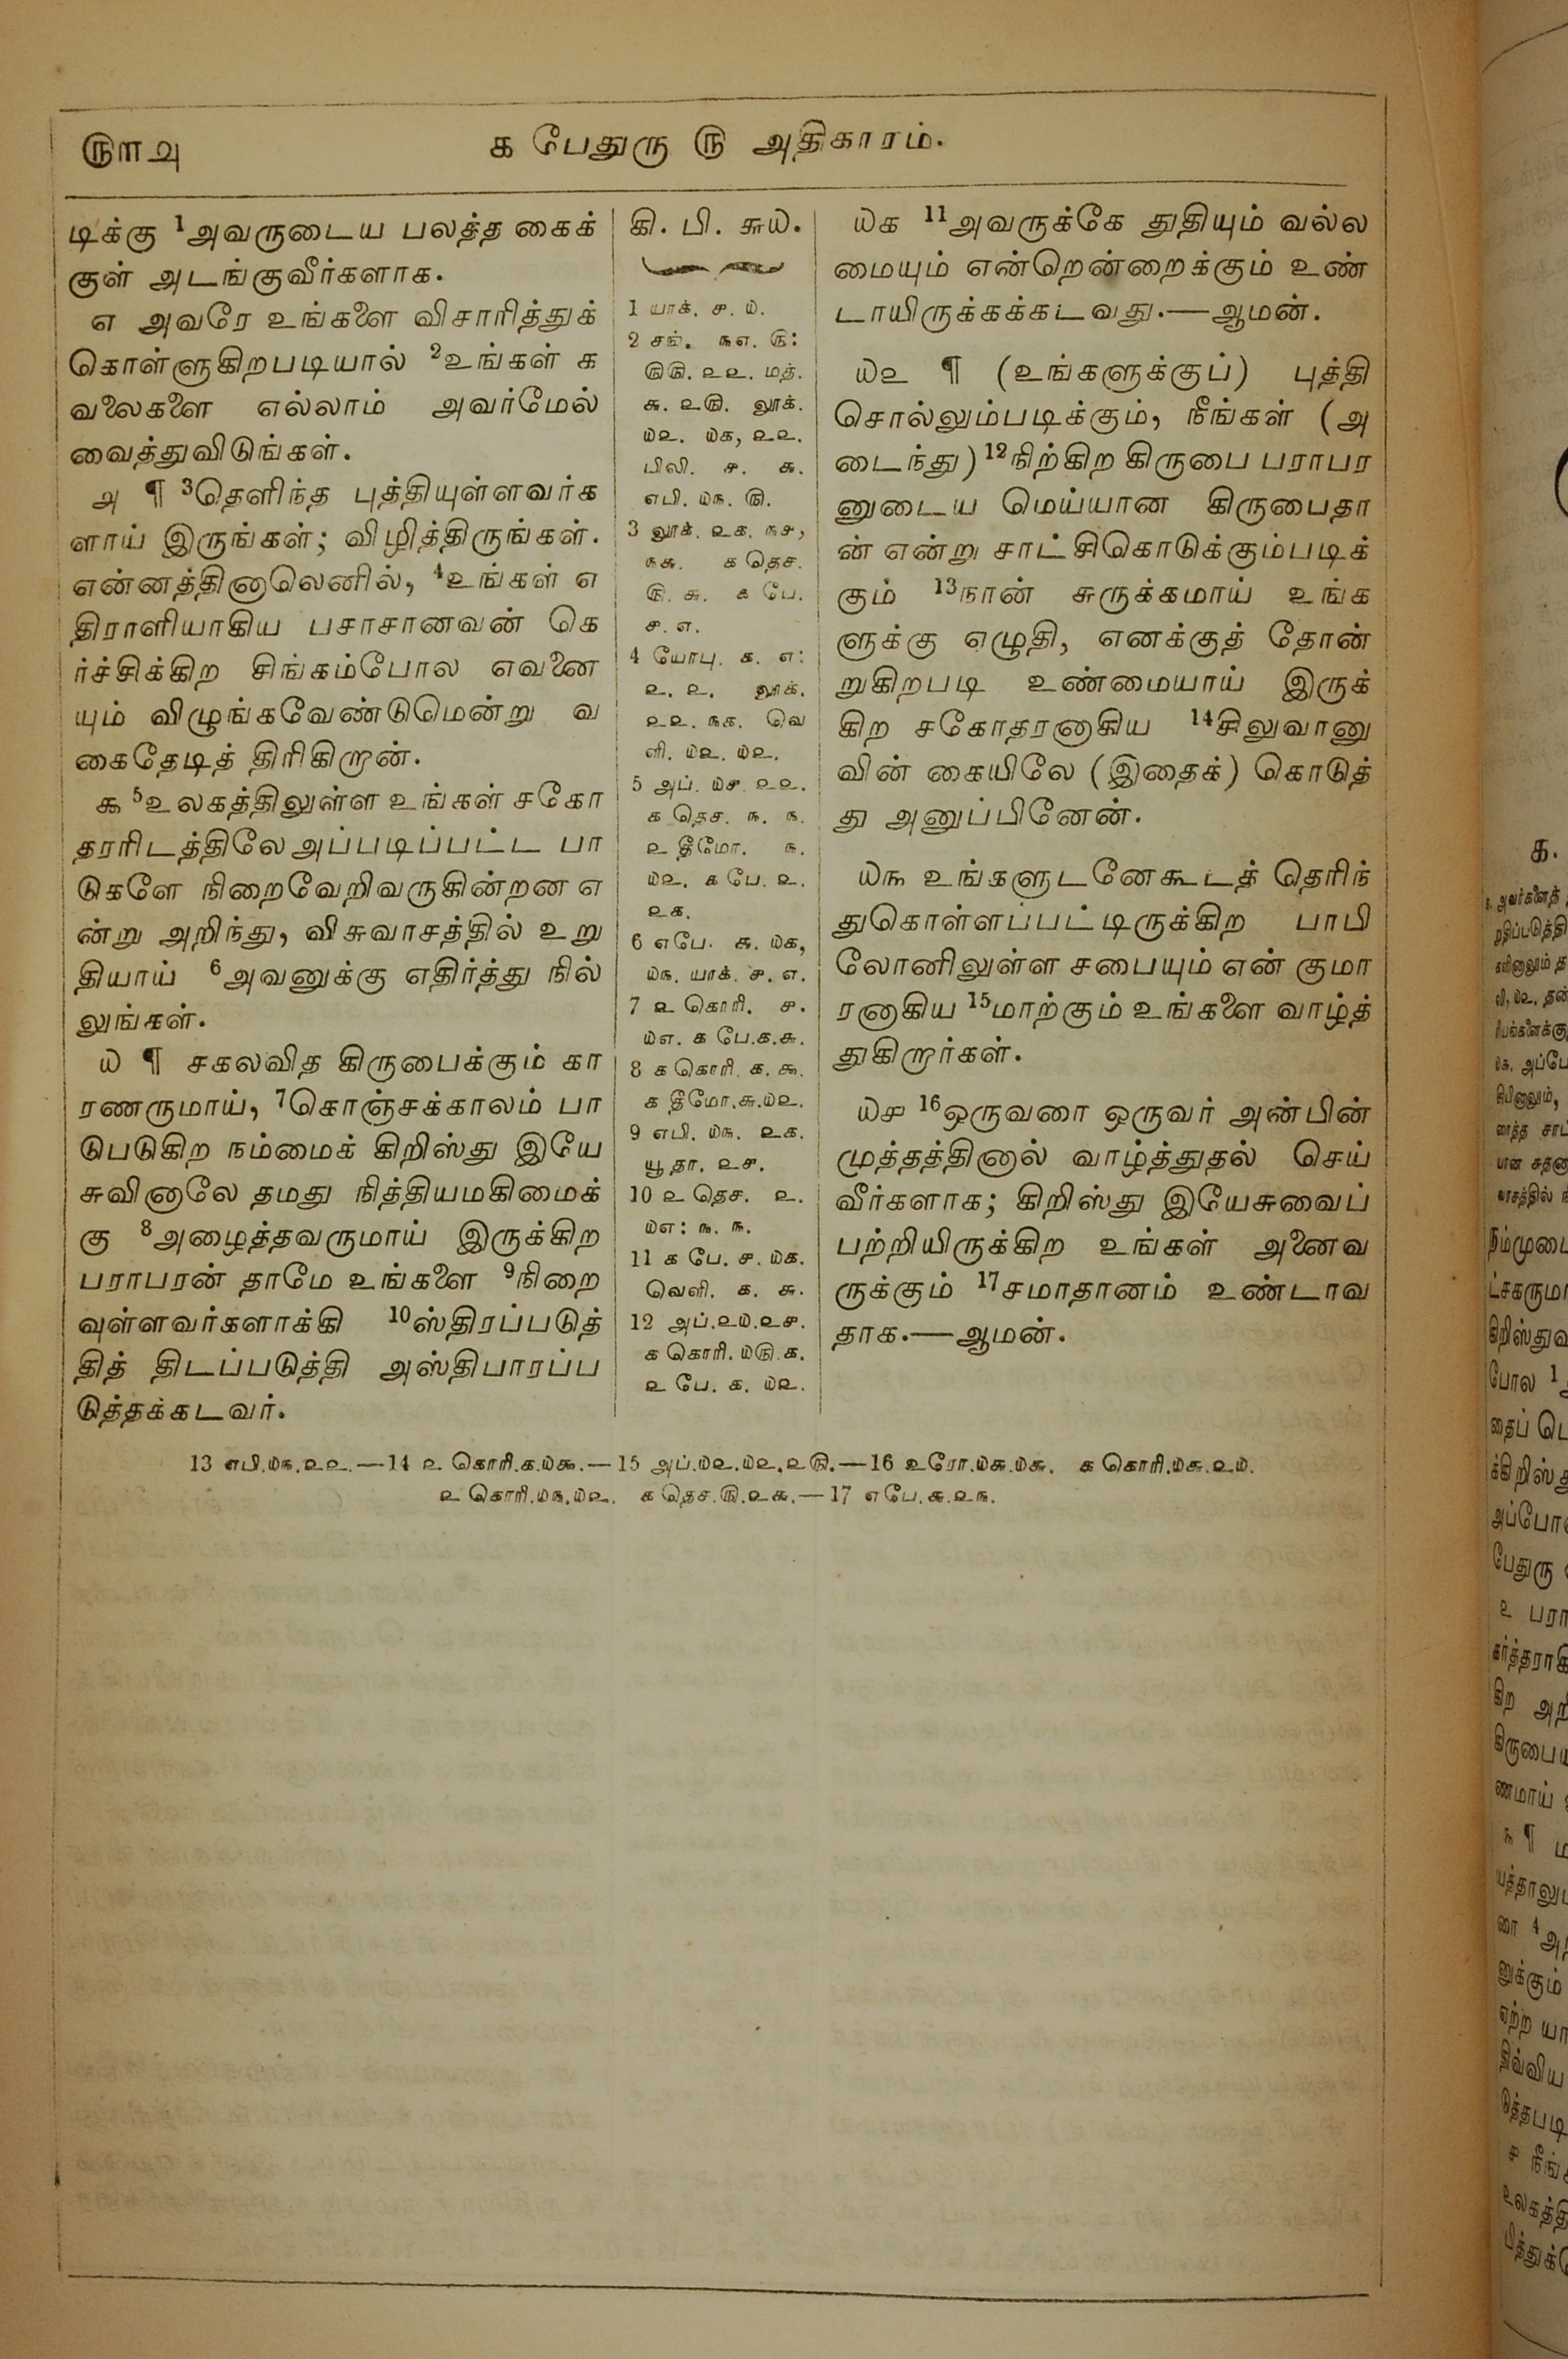 ௫௱௮
௧ பேதுரு ௫ அதிகாரம்.
டிக்கு ¹அவருடைய பலத்த கைக்
குள் அடங்குவீர்களாக.
௭ அவரே உங்களை விசாரித்துக்
கொள்ளுகிறபடியால் ²உங்கள் க
வலைகளை எல்லாம் அவர்மேல்
வைத்துவிடுங்கள்.
௮ ¶ ³தெளிந்த புத்தியுள்ளவர்க
ளாய் இருங்கள்; விழித்திருங்கள்.
என்னத்தினாலெனில், ⁴உங்கள் எ
திராளியாகிய பசாசானவன் கெ
ர்ச்சிக்கிற சிங்கம்போல எவனை
யும் விழுங்கவேண்டுமென்று வ
கைதேடித் திரிகிறான்.
௯ ⁵உலகத்திலுள்ள உங்கள் சகோ
தரரிடத்திலே அப்படிப்பட்ட பா
டுகளே நிறைவேறிவருகின்றன எ
ன்று அறிந்து, விசுவாசத்தில் உறு
தியாய் ⁶அவனுக்கு எதிர்த்து நில்
லுங்கள்.
௰ ¶ சகலவித கிருபைக்கும் கா
ரணருமாய், ⁷கொஞ்சக்காலம் பா
டுபடுகிற நம்மைக் கிறிஸ்து இயே
சுவினாலே தமது நித்தியமகிமைக்
கு ⁸அழைத்தவருமாய் இருக்கிற
பராபரன் தாமே உங்களை ⁹நிறை
வுள்ளவர்களாக்கி ¹⁰ஸ்திரப்படுத்
தித் திடப்படுத்தி அஸ்திபாரப்ப
டுத்தக்கடவர்.
கி. பி. ௬௰.
1 யாக். ௪. ௰.
2 சங். ௩௭. ௫:
௫௫. ௨௨. மத்.
௬. ௨௫. லூக்.
௰௨. ௰௧, ௨௨.
பிலி. ௪. ௬.
எபி. ௰௩. ௫.
3 லூக். ௨௧. ௩௪,
௩௬. ௧ தெச.
௫. ௬. ௧ பே.
௪. ௭.
4 யோபு. ௧. ௭:
௨. ௨. லூக்.
௨௨. ௩௧. வெ
ளி. ௰௨. ௰௨.
5 அப். ௰௪. ௨௨.
௧ தெச. ௩. ௩.
௨ தீமோ. ௩.
௰௨. ௧ பே. ௨.
௨௧.
6 எபே. ௬. ௰௧,
௰௩. யாக். ௪. ௭.
7 ௨ கொரி. ௪.
௰௭. ௧ பே.௧.௬.
8 ௧ கொரி. ௧. ௯.
௧ தீமோ.௬.௰௨.
9 எபி. ௰௩. ௨௧.
யூதா. ௨௪.
10 ௨ தெச. ௨.
௰௭: ௩. ௩.
11 ௧ பே. ௪. ௰௧.
வெளி. ௧. ௬.
12 அப்.௨௰.௨௪.
௧ கொரி. ௰௫.௧.
௨ பே. ௧. ௰௨.
௰௧ ¹¹அவருக்கே துதியும் வல்ல
மையும் என்றென்றைக்கும் உண்
டாயிருக்கக்கடவது.—ஆமன்.
௰௨ ¶ (உங்களுக்குப்) புத்தி
சொல்லும்படிக்கும், நீங்கள் (அ
டைந்து) ¹²நிற்கிற கிருபை பராபர
னுடைய மெய்யான கிருபைதா
ன் என்று சாட்சிகொடுக்கும்படிக்
கும் ¹³நான் சுருக்கமாய் உங்க
ளுக்கு எழுதி, எனக்குத் தோன்
றுகிறபடி உண்மையாய் இருக்
கிற சகோதரனாகிய ¹⁴சிலுவானு
வின் கையிலே (இதைக்) கொடுத்
து அனுப்பினேன்.
௰௩ உங்களுடனேகூடத் தெரிந்
துகொள்ளப்பட்டிருக்கிற பாபி
லோனிலுள்ள சபையும் என் குமா
ரனாகிய ¹⁵மாற்கும் உங்களை வாழ்த்
துகிறார்கள்.
௰௪ ¹⁶ஒருவரை ஒருவர் அன்பின்
முத்தத்தினால் வாழ்த்துதல் செய்
வீர்களாக; கிறிஸ்து இயேசுவைப்
பற்றியிருக்கிற உங்கள் அனைவ
ருக்கும் ¹⁷சமாதானம் உண்டாவ
தாக.—ஆமன்.
13 எபி.௰௩.௨௨.—14 ௨ கொரி.௧.௰௯.—15 அப்.௰௨.௰௨,௨௫.—16 உரோ.௰௬.௰௬. ௧ கொரி.௰௬.௨௰.
௨ கொரி.௰௩.௰௨. ௧ தெச.௫.௨௬.—17 எபே.௬.௨௩.